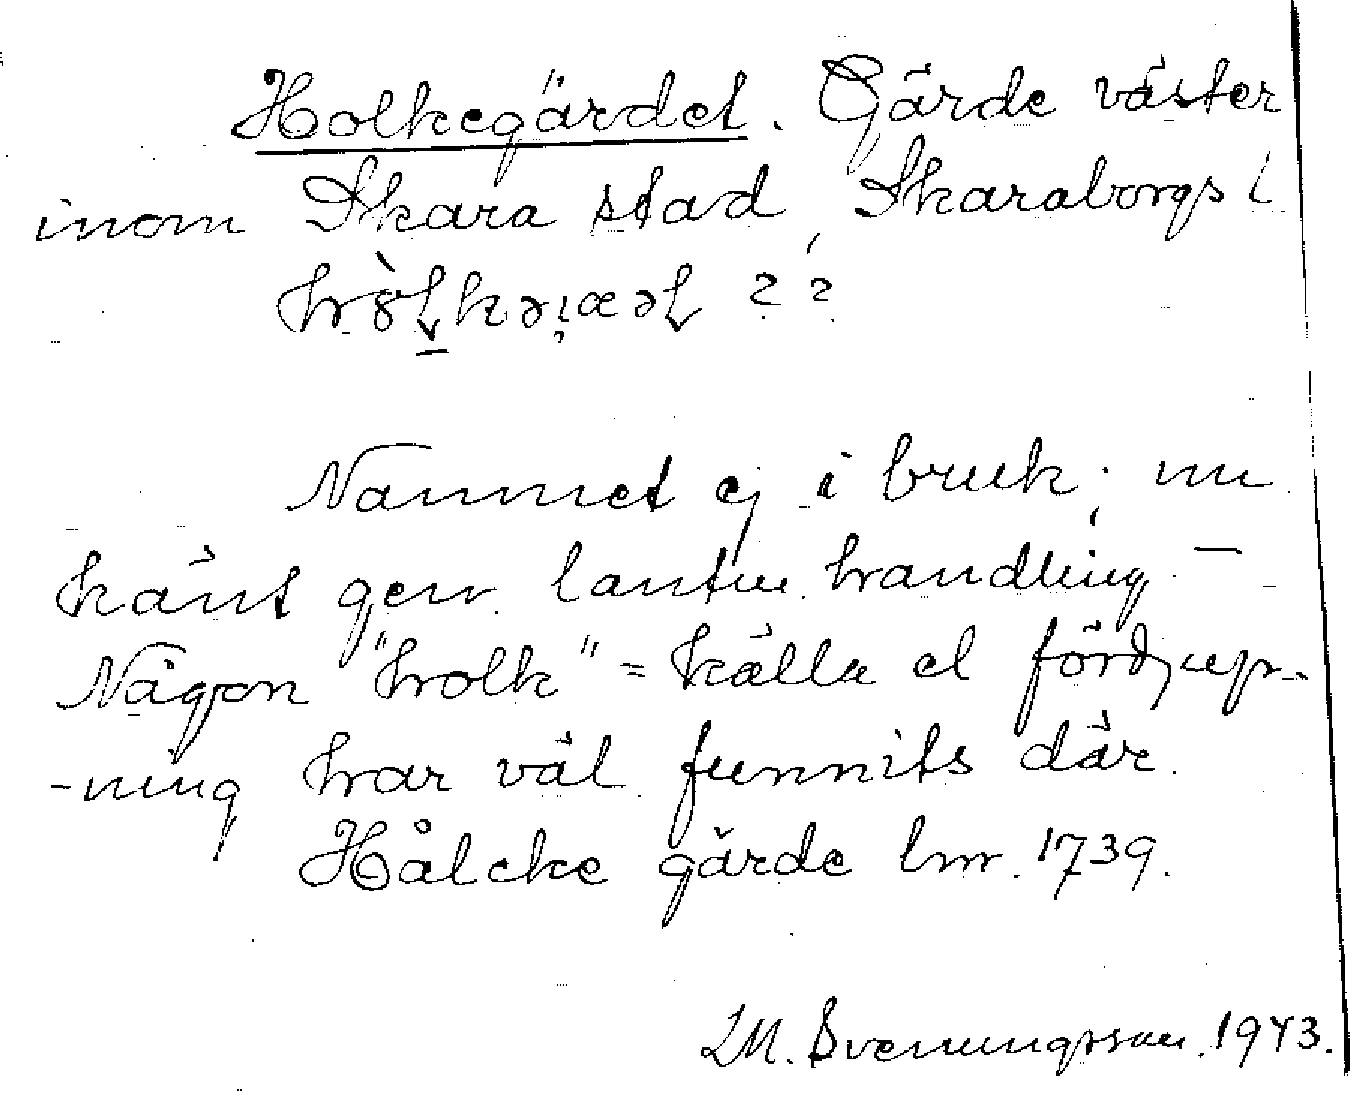 Holkegärdet. Gärde väster
inom Skara stad, Skaraborgs l
Namnet ej i bruk; nu
känt gem. lantm. handling. –
Någon "holk" = källa el fördjup-
-ning har väl funnits där.
Hålcke gärde lm. 1739.
LM. Svenungsson. 1943.